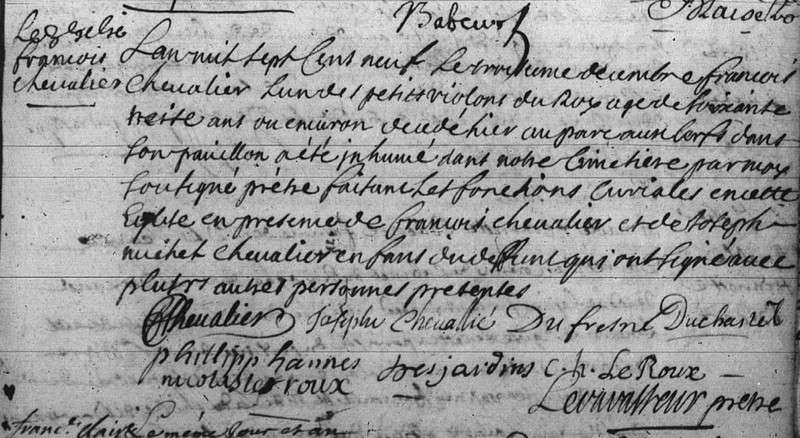 Babeur
françois
chevalier
L'an mil sept Cens neuf Le troisieme decembre françois
Chevalier L'un des petits violons du Roy age de soixante
treise ans ou environ decedé hier au parc aux Cerfs dans
son pavillon a été inhumé dans notre Cimetière par moy
soussigné prêtre faisant Les fonctions Curiales en cette
Eglise en presence de françois chevalier et de Joseph
michel Chevalier enfans du deffunt qui ont signé avec
plusrs autres personnes presentes
Chevalier Joseph Chevallié Dufresne Duchasnel
phillipp hannes Desjardins C. h. Le Roux
nicolas Leroux
Levavasseur prêtre
Le même jour et an